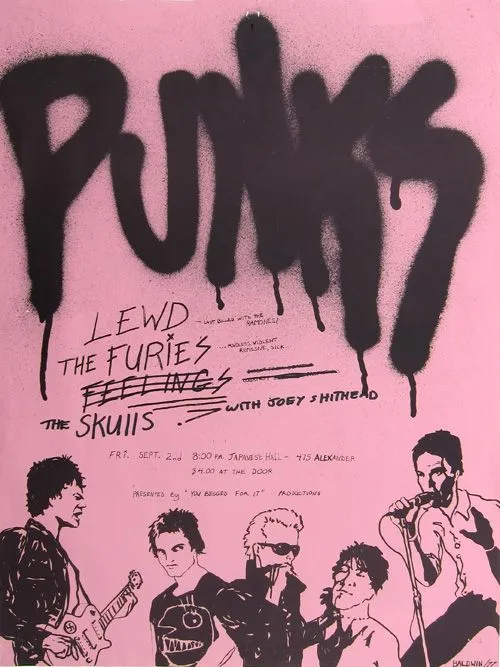 PUNKS
LEWD - LAST BILLED WITH THE RAMONES!
THE FURIES ...MINDLESS, VIOLENT REPULSIVE, SICK...
FEELINGS
THE SKUllS WITH JOEY SHITHEAD
FRI. SEPT. 2nd 8:00 P.M. JAPANESE HALL - 475 ALEXANDER
$4.00 AT THE DOOR
PRESENTED By "YOU BEGGED FOR IT" PRODUCTIONS
BALDWIN